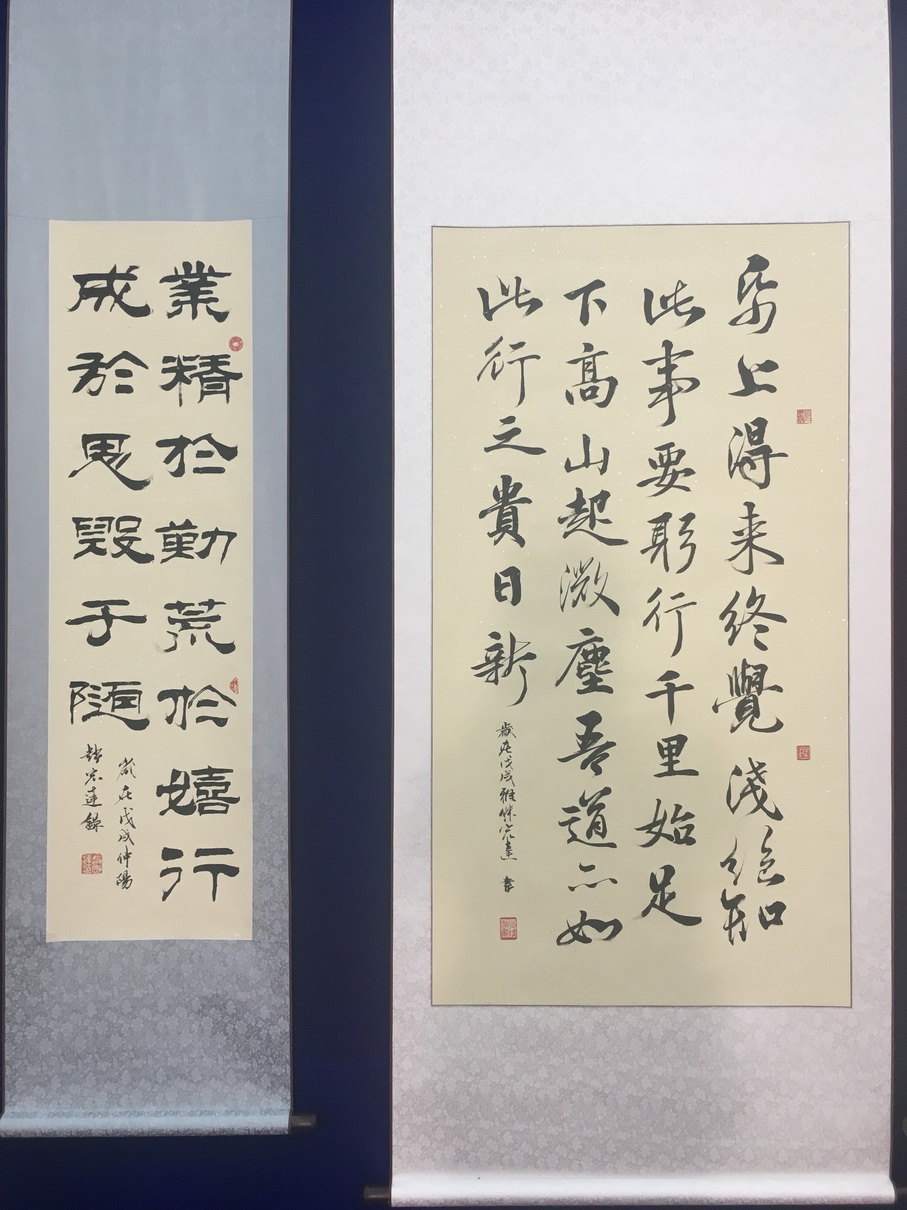 帋上得来终覺淺绝知
此事要躬行千里始足
下高山起微塵吾道亦如
此行之貴日新
歲在戊戌雅傑宏達書
業精於勤荒於嬉行
成於思毀于隨
歲在戊戌仲陽
宏達錄